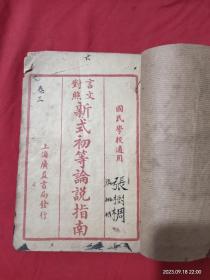 國民學校適用
言文對照
新式初等論說指南
上海廣益書局發行
卷三
張樹
2023.09.18 16:23